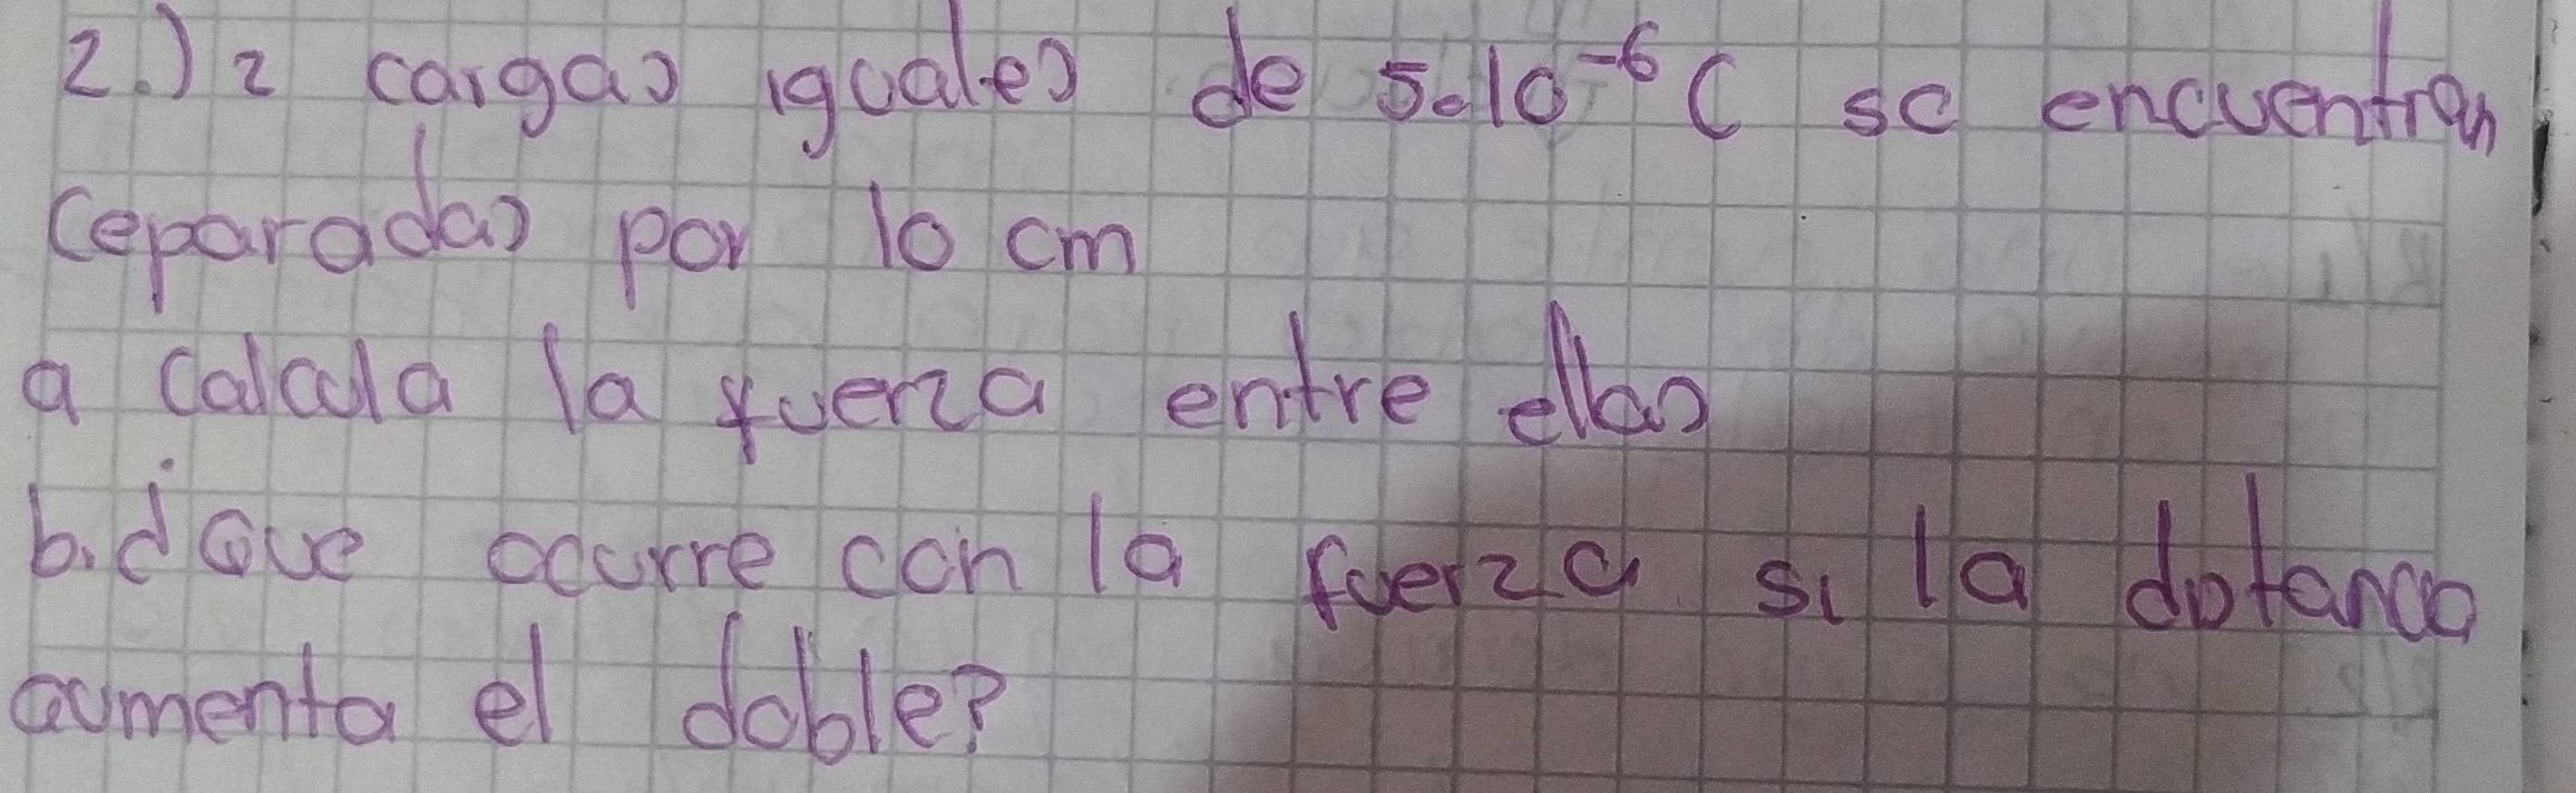 2.) 2 cargas iguales de 5.10⁻⁶ C se encuentran
ceparadas por 10 cm
a calcula la fuerza entre ellas
b. ¿Que ocurre con la fuerza si la distancia
aumenta el doble?